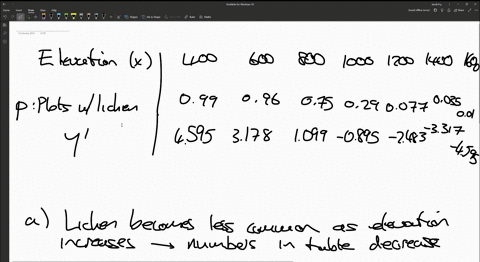 Elevation (x) 400 600 800 1000 1200 1400 1600
p: Plots w/ lichen 0.99 0.96 0.75 0.29 0.077 0.035 0.01
y' 4.595 3.178 1.099 -0.895 -2.483 -3.317 -4.595
a) Lichen becomes less common as elevation
increases → numbers in table decrease